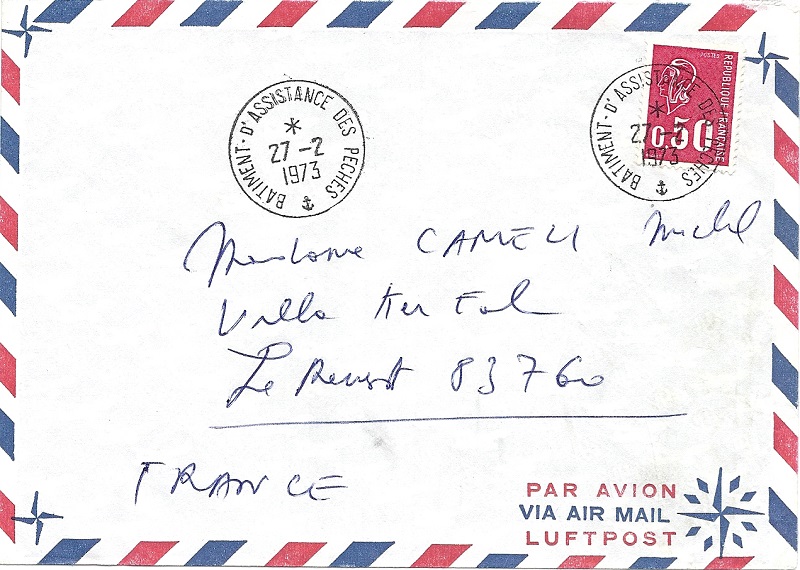 BATIMENT-D'ASSISTANCE DES PECHES
27-2
1973
POSTES
REPUBLIQUE FRANCAISE
0.50
BATIMENT-D'ASSISTANCE DES PECHES
27-2
1973
Madame CAMELI Michel
Villa Ker
Le Revest 83760
FRANCE
PAR AVION
VIA AIR MAIL
LUFTPOST